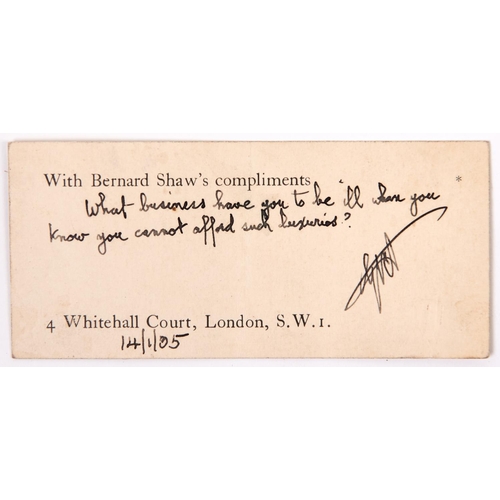 With Bernard Shaw's compliments *
What business have you to be ill when you
know you cannot afford such luxuries?
4 Whitehall Court, London, S.W.1.
14/1/05